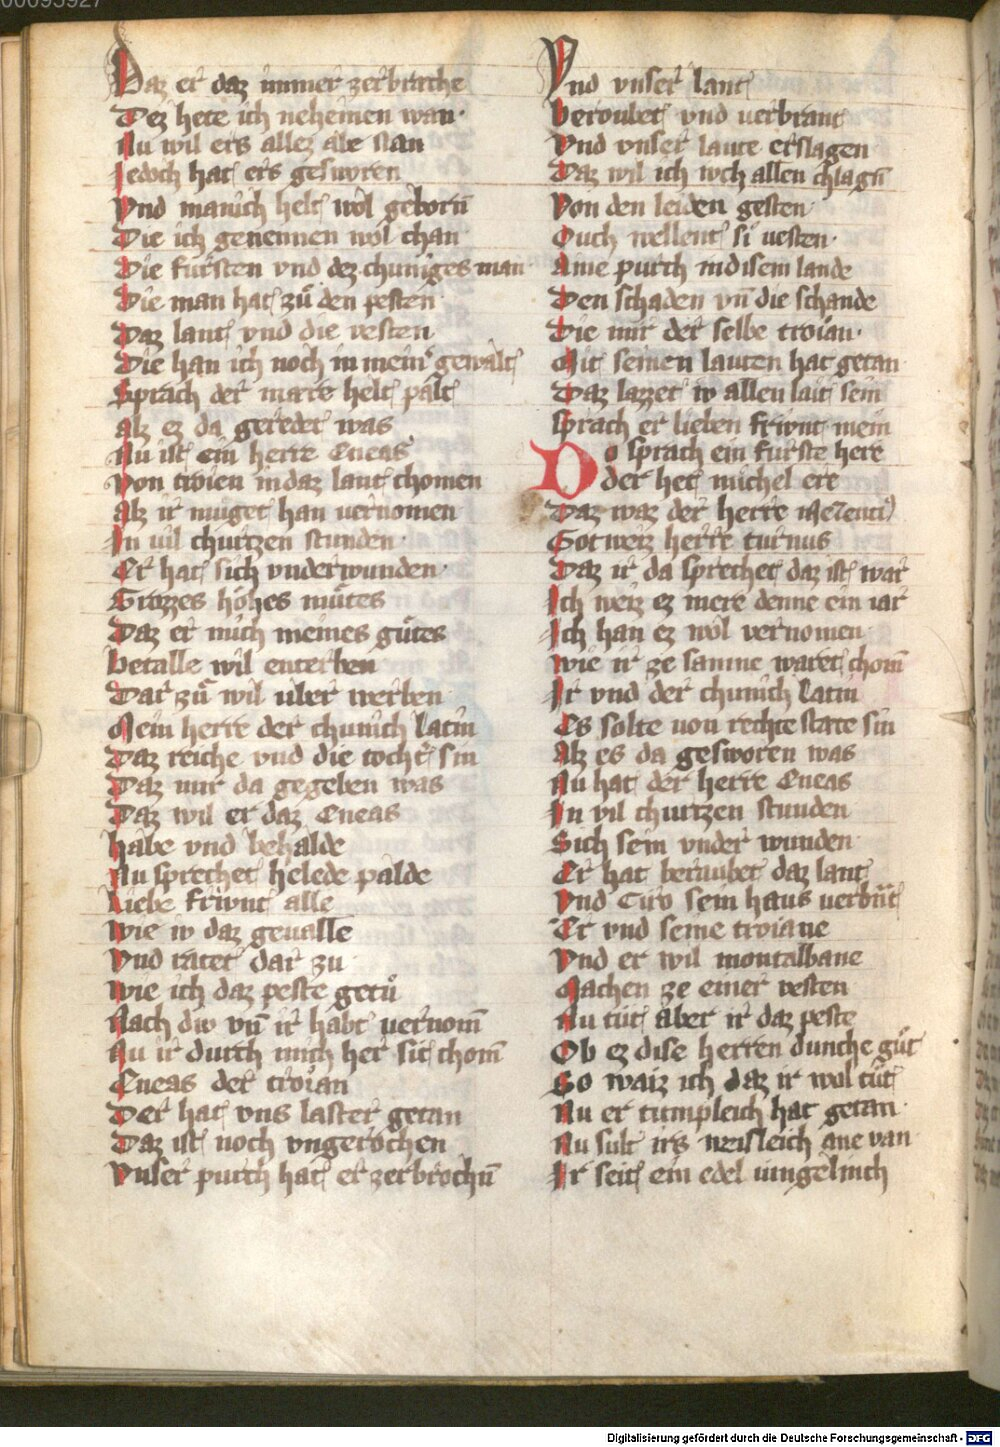 00095927
Daz er daz immer zerbrache
Dez hete ich neheinen wan·
Nu wil ers allez abe stan
Jedoch hat ers gesworen
Vnd manich helt wol geborn̄
Die ich genennen wol chan
Die fursten vnd dez chuniges man
Die man hat zů den pesten
Daz lant vnd die vesten
Die han ich noch in meiner gewalt
Sprach der mare helt palt
alz ez da geredet was
Nu ist ein herre Eneas
Von troien in daz lant chomen
alz ir muget han uernomen
In vil churtzen stunden·
Er hat sich vnderwunden·
Grozzes hohes můtes
Daz er mich meines gůtes
betalle wil enterben
Dar zů wil uber werben
Mein herre der chunich Latin
Daz reiche vnd die tocht̄ sin
Daz mir da gegeben was
Daz wil er daz Eneas
habe vnd behalde
Nu sprechet helede palde
Liebe friwnt alle
wie iv daz geualle
Vnd ratet dar zu
wie ich daz peste getů
Nach div vn̄ ir habt uernom̄
Nu ir durch mich her sit chom̄
Eneas der troian
Der hat vns laster getan
Daz ist noch vngerochen
Vnser purch hat er zerbrochn̄
Vnd vnser lant
beroubet vnd uerbrant
Vnd vnser laute erslagen
Daz wil ich iwch allen chlagn̄
Von den leiden gesten·
Ouch wellent si uesten·
Aine purch in disem lande
Den schaden vn̄ die schande
Die mir der selbe troian·
Mit seinen lauten hat getan
Daz lazzet iv allen lait sein
sprach er lieben friwnt mein
Do sprach ein furste here
der het michel ere
Daz waz der herre mezenti⁹
Gotweiz herre turnus
Daz ir da sprechet daz ist war
Ich weiz ez mere denne ein iar
Ich han ez wol vernomen
wie ir ze samne waret chom̄
Ir vnd der chunich Latin
Es solte von rechte state sin
Alz es da gesworen was
Nu hat der herre Eneas
In vil churtzen stunden
Sich sein vnder wunden
Er hat beroubet daz lant
Vnd Tirv sein haus uerbn̄t
Er vnd seine troiane
Vnd er wil montalbane
Machen ze einer vesten
Nu tut aber ir daz peste
Ob ez dise herren dunche gůt
So waiz ich daz ir wol tůt
Nu er tumpleich hat getan·
Nu sult irs weisleich ane van
Ir seit ein edel iungelinch
Digitalisierung gefördert durch die Deutsche Forschungsgemeinschaft - DFG